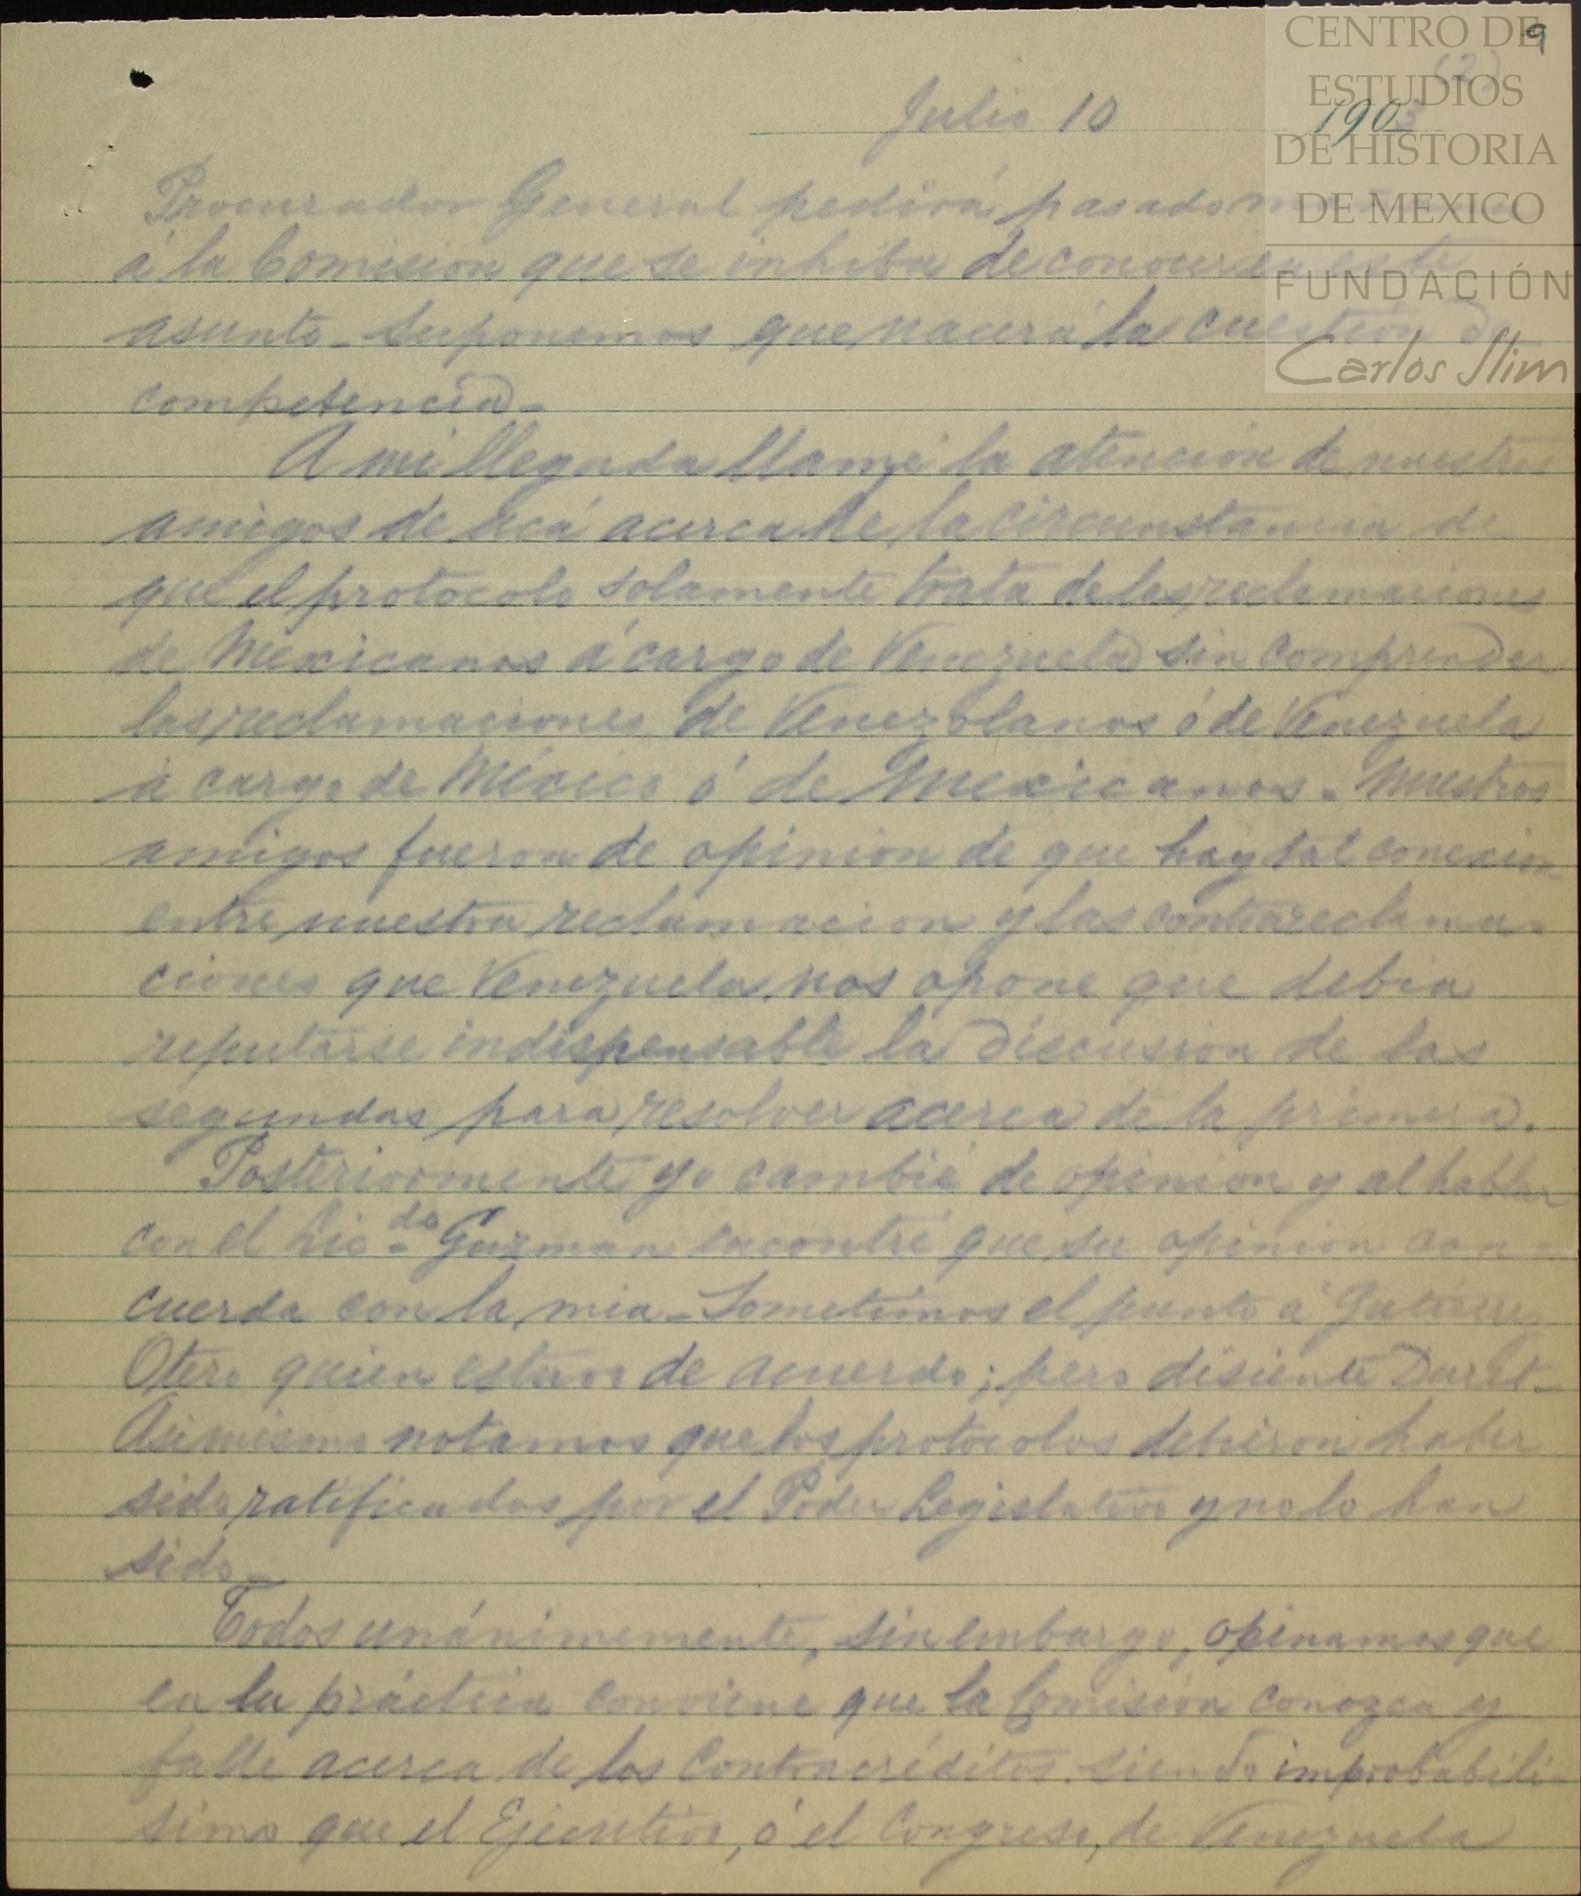 CENTRO DE
ESTUDIOS
DE HISTORIA
DE MEXICO
FUNDACIÓN
Carlos Slim
9
(2)
Julio 10 1903
Procurador General pedirá pasado
á la Comision que se inhiba de conocer en este
asunto. Suponemos que nacerá la cuestion de
competencia.
A mi llegada llamé la atencion de nuestros
amigos de acá acerca de la circunstancia de
que el protocolo solamente trata de las reclamaciones
de Mexicanos á cargo de Venezuela sin comprender
las reclamaciones de Venezolanos ó de Venezuela
á cargo de México ó de Mexicanos. Nuestros
amigos fueron de opinion de que hay tal conexion
entre nuestra reclamacion y las contrareclama-
ciones que Venezuela nos opone que debia
reputarse indispensable la discusion de las
segundas para resolver acerca de la primera.
Posteriormente yo cambié de opinion y al hablar
con el Licdo Guzman encontré que su opinion con-
cuerda con la mia. Sometimos el punto á Gutierrez
Otero quien estuvo de acuerdo; pero disiente Duret.
Asimismo notamos que los protocolos debieron haber
sido ratificados por el Poder Legislativo y no lo han
sido.
Todos unánimemente, sin embargo, opinamos que
en la práctica conviene que la Comision conozca y
falle acerca de los Contracréditos. siendo improbabili-
simo que el Ejecutivo, ó el Congreso, de Venezuela